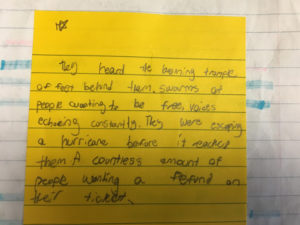 They heard the booming trample
of feet behind them, swarms of
people wanting to be free, voices
echoing constantly. They were escaping
a hurricane before it reached
them A countless amount of
people wanting a refund on
their ticket.